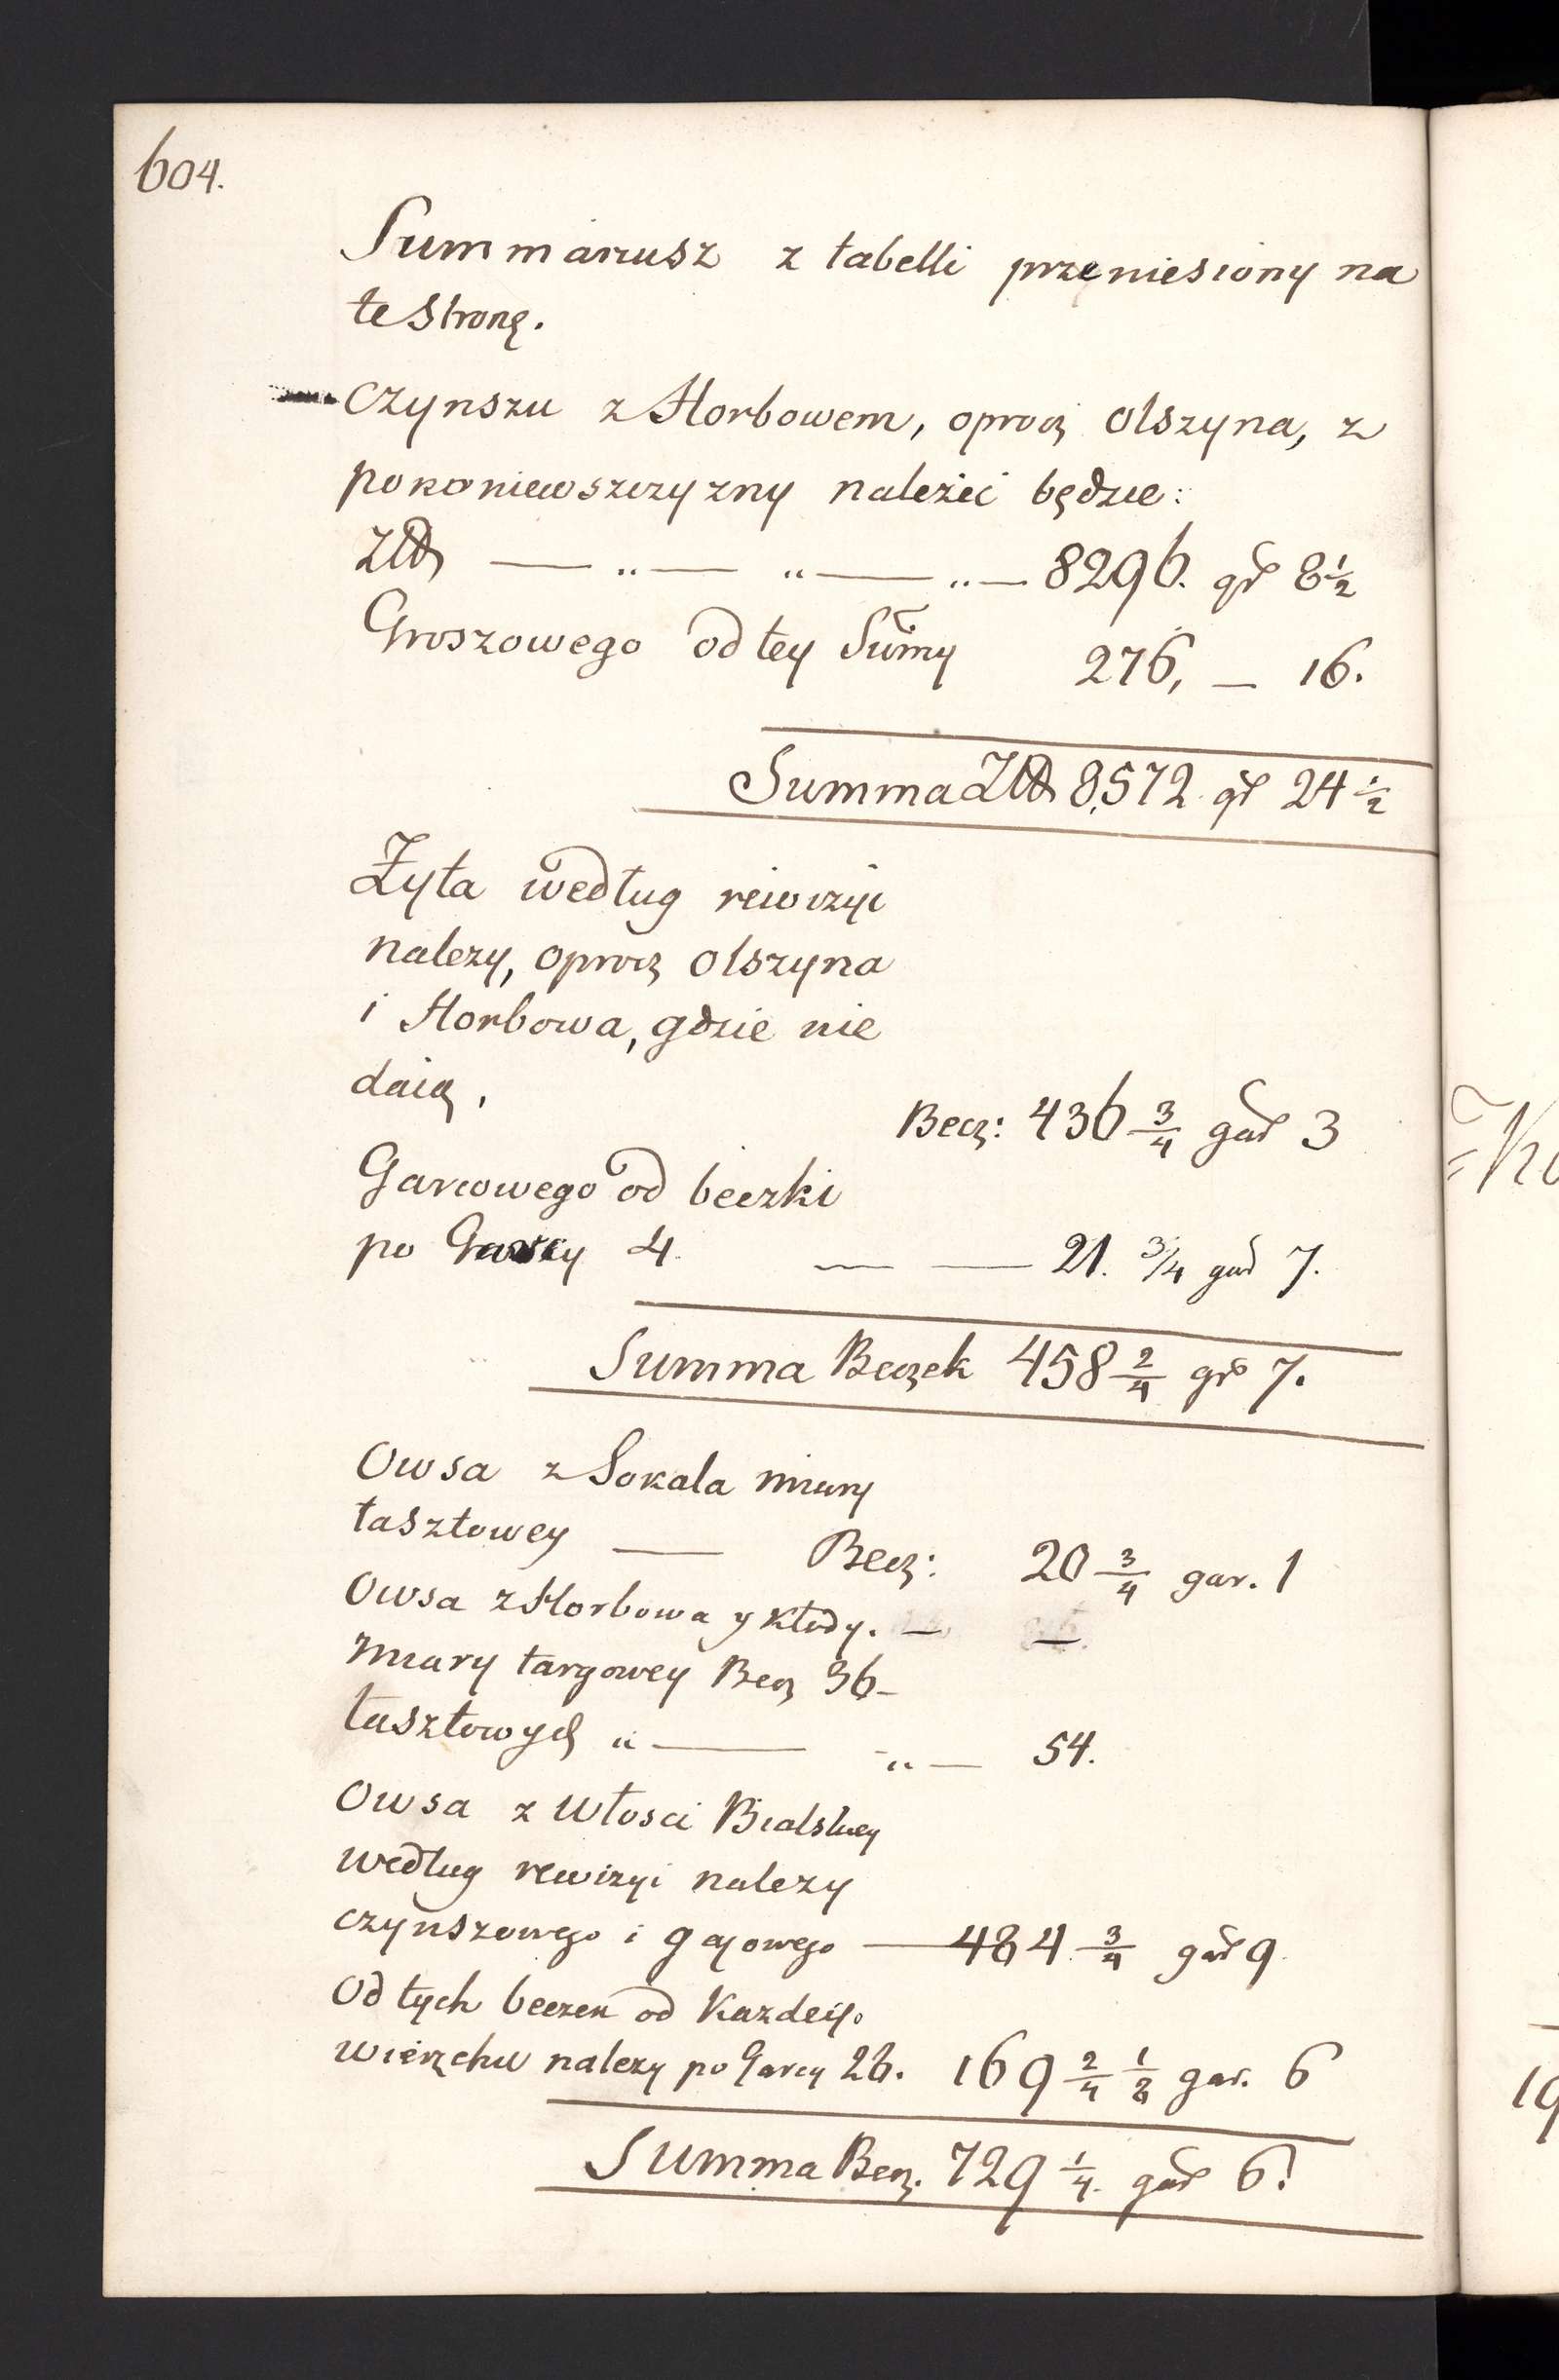 604.
Summariusz z tabelli przeniesiony na
te stronę.
Czynszu z Horbowem, oprocz Olszyna, z
pokoniewszczyzny należeć będzie:
Złł — „ — „ — „ — 8296. gr 8 1/2
Groszowego od tey Summy 276, — 16.
Summa Złł 8,572 gr 24 1/2
Żyta według rewizyi
nalezy, oprocz Olszyna
i Horbowa, gdzie nie
daią,
Becz: 436 3/4 gar 3
Garcowego od beczki
po Garcy 4. — — 21. 3/4 gar 7.
Summa Beczek 458 2/4 gr 7.
Owsa z Sokala miary
tasztowey — Becz: 20 3/4 gar. 1
Owsa z Horbowa y Kłody. — —
miary targowey Becz 36 –
tasztowych „ — „ — 54.
Owsa z Włosci Bialskiey
według rewizyi nalezy
czynszowego i gajowego — 484 3/4 gar 9
Od tych beczek od Kazdey.
wierzchu nalezy po Garcy 26. 169 2/4 1/8 gar. 6
Summa Becz. 729 1/4. gar 6.